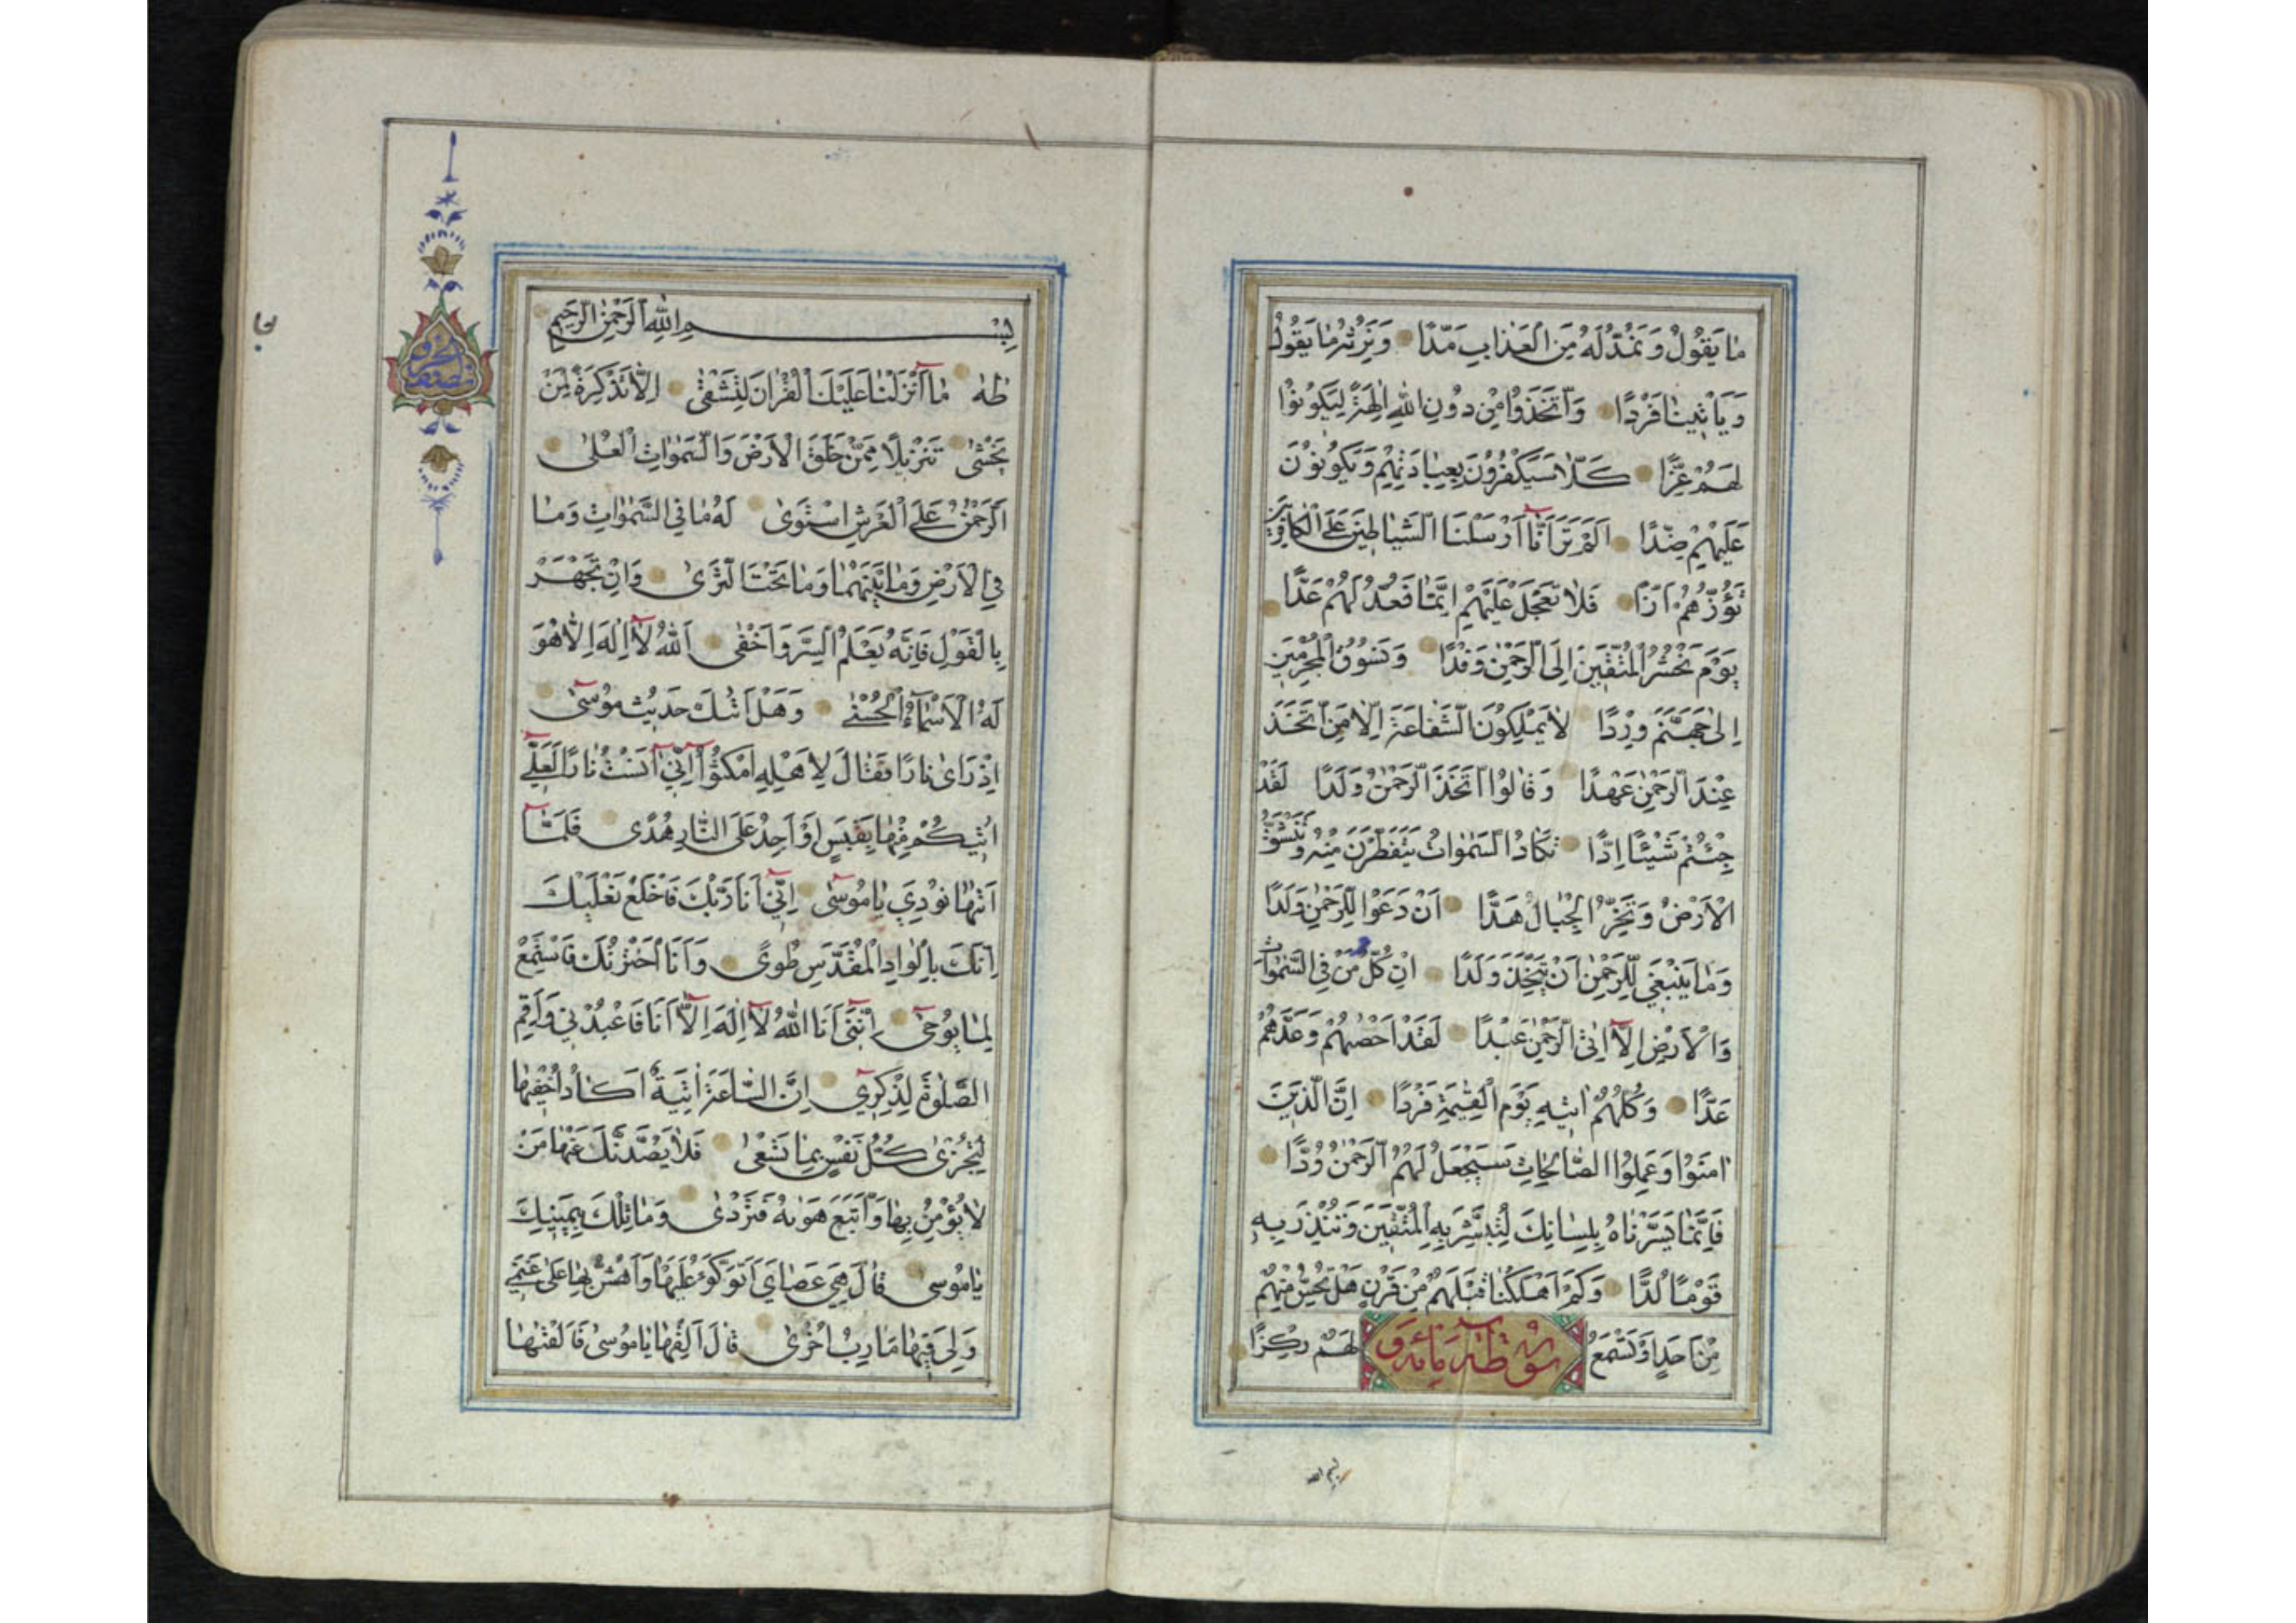 مَا يَقُولُ وَنَمُدُّ لَهُ مِنَ الْعَذَابِ مَدًّا وَنَرِثُهُ مَا يَقُولُ
وَيَأْتِينَا فَرْدًا وَاتَّخَذُوا مِنْ دُونِ اللهِ اٰلِهَةً لِيَكُونُوا
لَهُمْ عِزًّا كَلَّا سَيَكْفُرُونَ بِعِبَادَتِهِمْ وَيَكُونُونَ
عَلَيْهِمْ ضِدًّا اَلَمْ تَرَ اَنَّا اَرْسَلْنَا الشَّيَاطِينَ عَلَى الْكَافِرِينَ
تَؤُزُّهُمْ اَزًّا فَلَا تَعْجَلْ عَلَيْهِمْ اِنَّمَا نَعُدُّ لَهُمْ عَدًّا
يَوْمَ نَحْشُرُ الْمُتَّقِينَ اِلَى الرَّحْمٰنِ وَفْدًا وَنَسُوقُ الْمُجْرِمِينَ
اِلٰى جَهَنَّمَ وِرْدًا لَا يَمْلِكُونَ الشَّفَاعَةَ اِلَّا مَنِ اتَّخَذَ
عِنْدَ الرَّحْمٰنِ عَهْدًا وَقَالُوا اتَّخَذَ الرَّحْمٰنُ وَلَدًا لَقَدْ
جِئْتُمْ شَيْئًا اِدًّا تَكَادُ السَّمٰوَاتُ يَتَفَطَّرْنَ مِنْهُ وَتَنْشَقُّ
الْاَرْضُ وَتَخِرُّ الْجِبَالُ هَدًّا اَنْ دَعَوْا لِلرَّحْمٰنِ وَلَدًا
وَمَا يَنْبَغِي لِلرَّحْمٰنِ اَنْ يَتَّخِذَ وَلَدًا اِنْ كُلُّ مَنْ فِي السَّمٰوَاتِ
وَالْاَرْضِ اِلَّا اٰتِي الرَّحْمٰنِ عَبْدًا لَقَدْ اَحْصٰيهُمْ وَعَدَّهُمْ
عَدًّا وَكُلُّهُمْ اٰتِيهِ يَوْمَ الْقِيٰمَةِ فَرْدًا اِنَّ الَّذِينَ
اٰمَنُوا وَعَمِلُوا الصَّالِحَاتِ سَيَجْعَلُ لَهُمُ الرَّحْمٰنُ وُدًّا
فَاِنَّمَا يَسَّرْنَاهُ بِلِسَانِكَ لِتُبَشِّرَ بِهِ الْمُتَّقِينَ وَتُنْذِرَ بِهِ
قَوْمًا لُدًّا وَكَمْ اَهْلَكْنَا قَبْلَهُمْ مِنْ قَرْنٍ هَلْ تُحِسُّ مِنْهُمْ
مِنْ اَحَدٍ اَوْ تَسْمَعُ لَهُمْ رِكْزًا
سورة طه
بسم الله
بِسْمِ اللهِ الرَّحْمٰنِ الرَّحِيمِ
طٰهٰ مَا اَنْزَلْنَا عَلَيْكَ الْقُرْاٰنَ لِتَشْقٰى اِلَّا تَذْكِرَةً لِمَنْ
يَخْشٰى تَنْزِيلًا مِمَّنْ خَلَقَ الْاَرْضَ وَالسَّمٰوَاتِ الْعُلٰى
اَلرَّحْمٰنُ عَلَى الْعَرْشِ اسْتَوٰى لَهُ مَا فِي السَّمٰوَاتِ وَمَا
فِي الْاَرْضِ وَمَا بَيْنَهُمَا وَمَا تَحْتَ الثَّرٰى وَاِنْ تَجْهَرْ
بِالْقَوْلِ فَاِنَّهُ يَعْلَمُ السِّرَّ وَاَخْفٰى اَللهُ لَا اِلٰهَ اِلَّا هُوَ
لَهُ الْاَسْمَاءُ الْحُسْنٰى وَهَلْ اَتٰيكَ حَدِيثُ مُوسٰى
اِذْ رَاٰى نَارًا فَقَالَ لِاَهْلِهِ امْكُثُوا اِنِّي اٰنَسْتُ نَارًا لَعَلِّي
اٰتِيكُمْ مِنْهَا بِقَبَسٍ اَوْ اَجِدُ عَلَى النَّارِ هُدًى فَلَمَّا
اَتٰيهَا نُودِيَ يَا مُوسٰى اِنِّي اَنَا رَبُّكَ فَاخْلَعْ نَعْلَيْكَ
اِنَّكَ بِالْوَادِ الْمُقَدَّسِ طُوًى وَاَنَا اخْتَرْتُكَ فَاسْتَمِعْ
لِمَا يُوحٰى اِنَّنِي اَنَا اللهُ لَا اِلٰهَ اِلَّا اَنَا فَاعْبُدْنِي وَاَقِمِ
الصَّلٰوةَ لِذِكْرِي اِنَّ السَّاعَةَ اٰتِيَةٌ اَكَادُ اُخْفِيهَا
لِتُجْزٰى كُلُّ نَفْسٍ بِمَا تَسْعٰى فَلَا يَصُدَّنَّكَ عَنْهَا مَنْ
لَا يُؤْمِنُ بِهَا وَاتَّبَعَ هَوٰيهُ فَتَرْدٰى وَمَا تِلْكَ بِيَمِينِكَ
يَا مُوسٰى قَالَ هِيَ عَصَايَ اَتَوَكَّؤُ عَلَيْهَا وَاَهُشُّ بِهَا عَلٰى غَنَمِي
وَلِيَ فِيهَا مَاٰرِبُ اُخْرٰى قَالَ اَلْقِهَا يَا مُوسٰى فَاَلْقٰيهَا